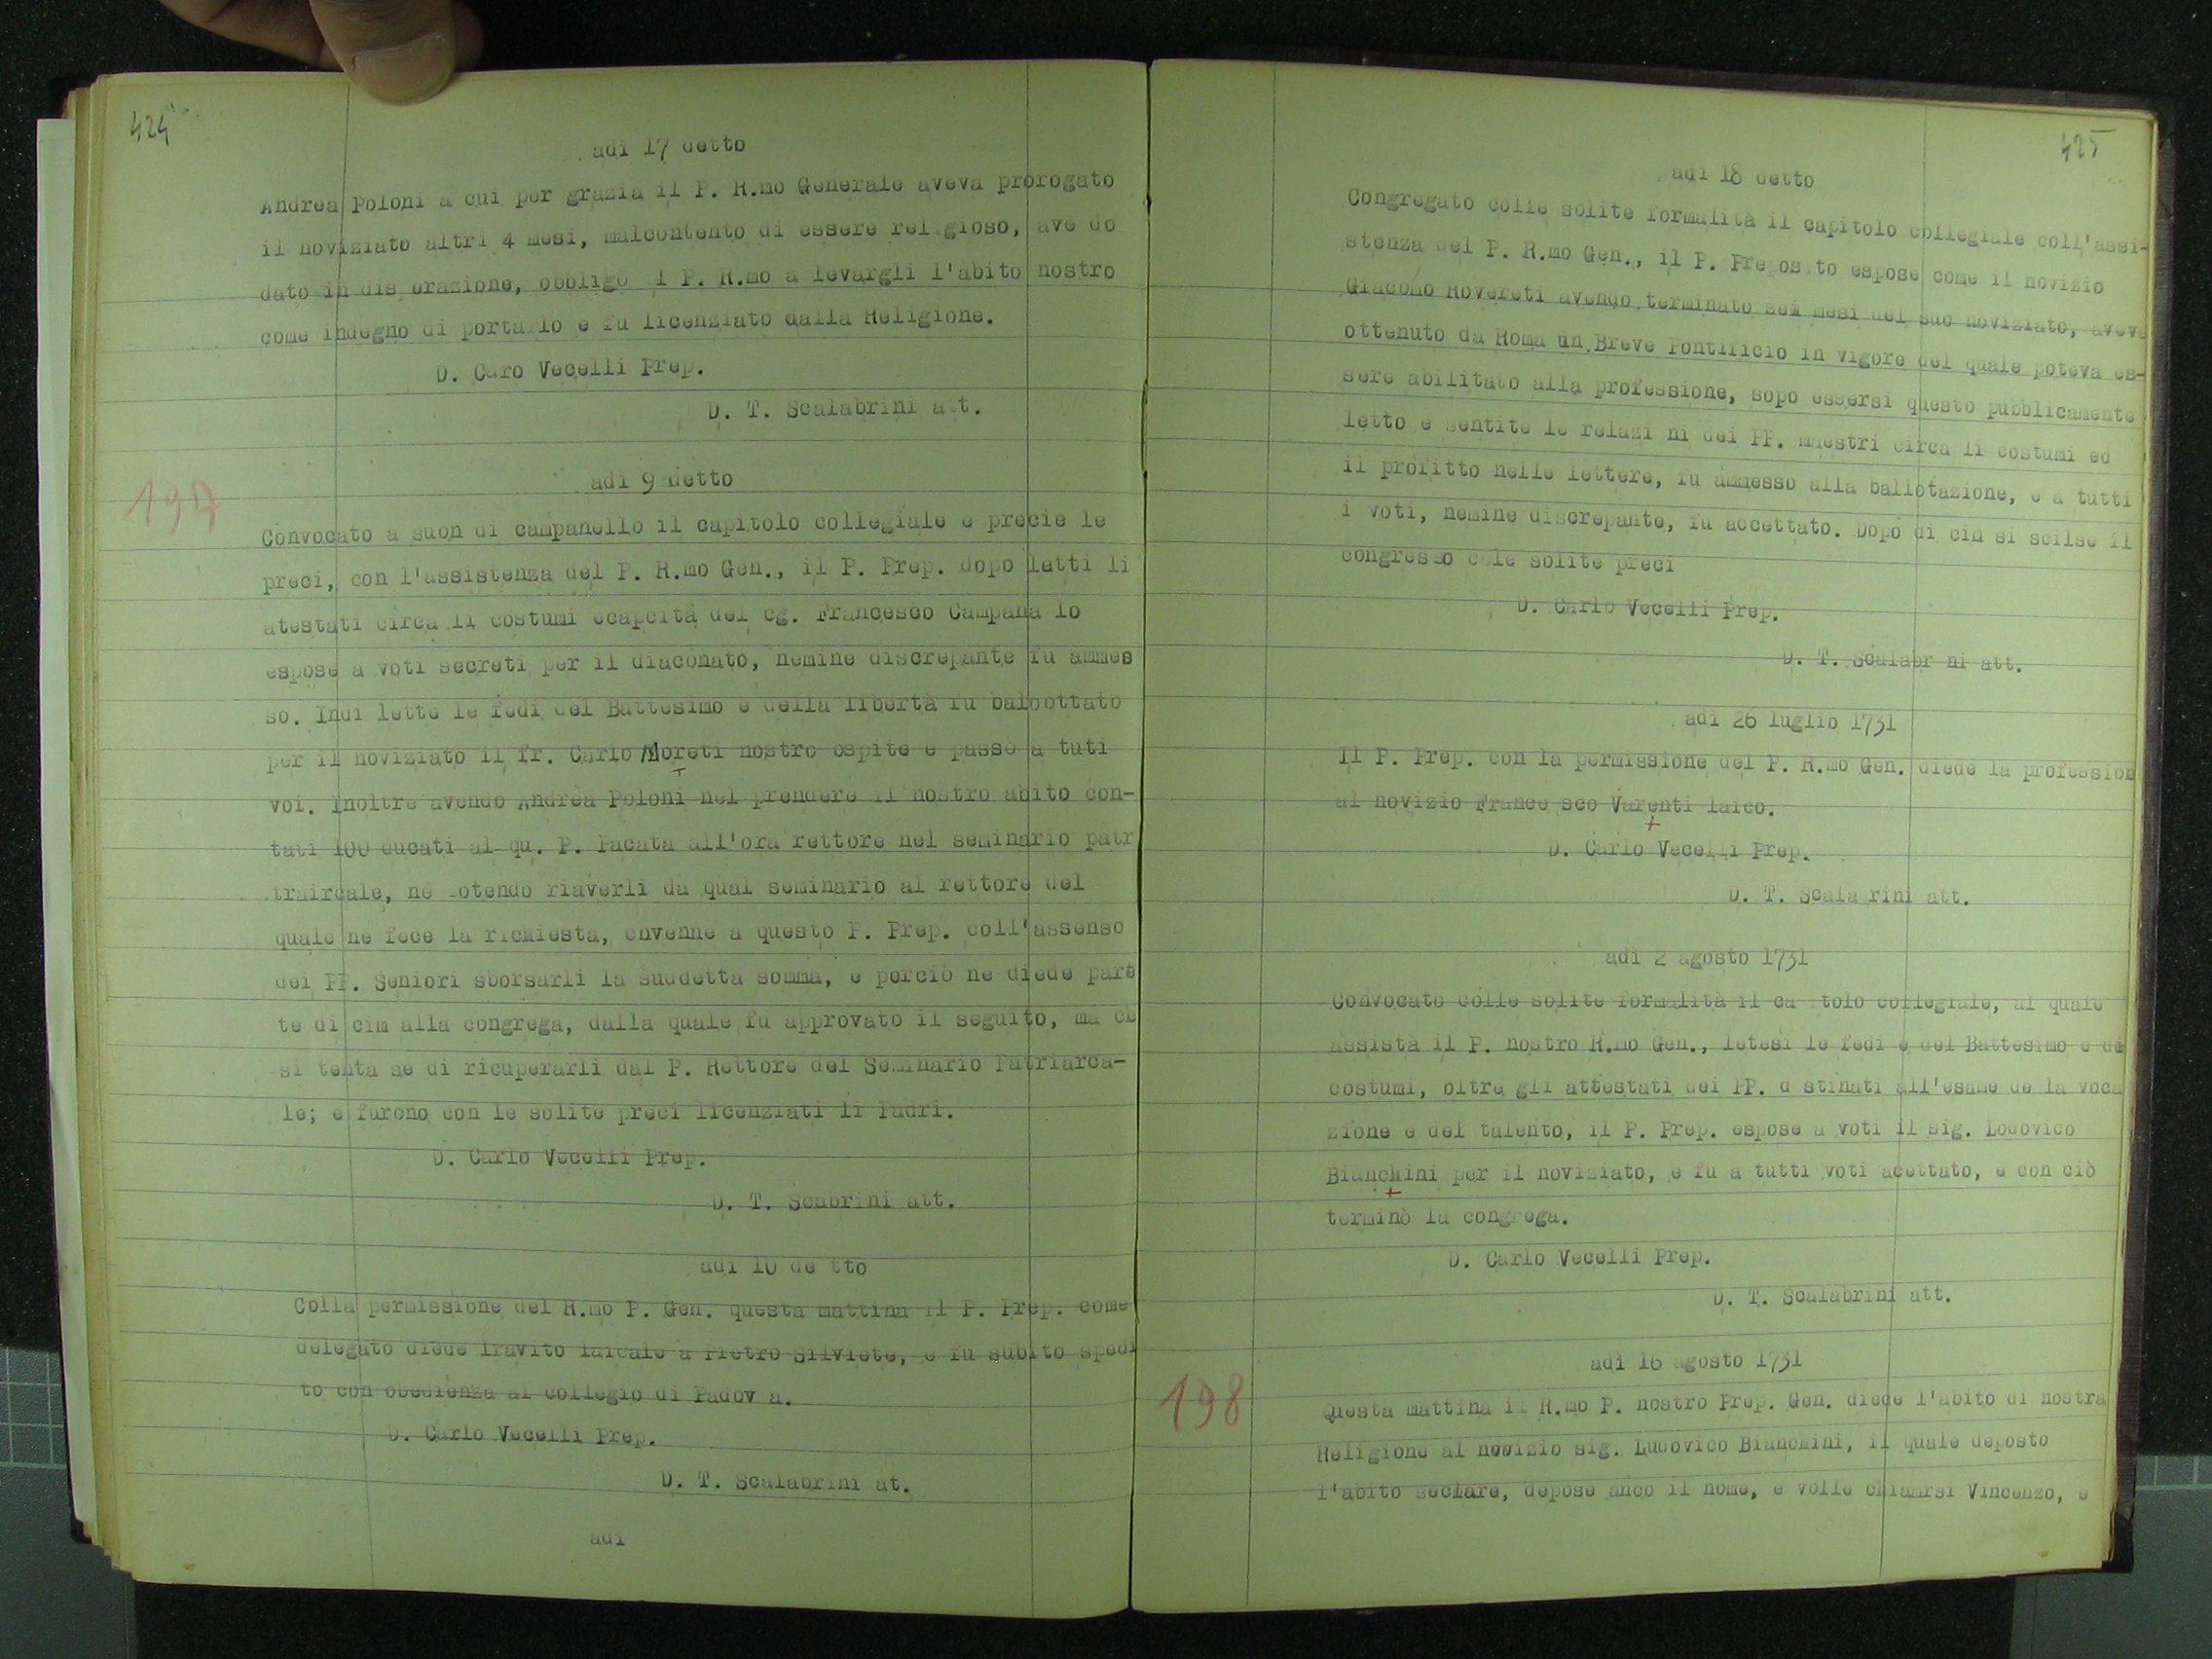 424
adì 17 detto
Andrea Poloni a cui per grazia il P. R.mo Generale aveva prorogato
il noviziato altri 4 mesi, malcontento di essere rel gioso, ave do
dato in dis erazione, obbligò l P. R.mo a levargli l'abito nostro
come indegno di portarlo e fu licenziato dalla Religione.
D. Caro Vecelli Prep.
D. T. Scalabrini att.
197
adì 9 detto
Convocato a suon di campanello il capitolo collegiale e precie le
preci, con l'assistenza del P. R.mo Gen., il P. Prep. dopo latti li
atestati circa li costumi ecapcità del cg. Francesco Campana lo
espose a voti secreti per il diaconato, nemine discrepante fu ammes
so. Indi lette le fedi del Battesimo e della libertà fu balottato
per il noviziato il fr. Carlo Moreti nostro ospite e passò a tuti
voi. Inoltre avendo Andrea Poloni nel prendere il nostro abito con-
tati 100 ducati al qu. P. Pacata all'ora rettore nel seminario patr
traircale, nè otendo riaverli da qual seminario al rettore del
quale ne fece la richiesta, cnvenne a questo P. Prep. coll'assenso
dei PP. Seniori sborsarli la suddetta somma, e perciò ne diede parte
te di cim alla congrega, dalla quale fu approvato il seguito, ma ch
si tenta se di ricuperarli dal P. Rettore del Seminario Patriarca-
le; e furcno con le solite preci licenziati li Padri.
D. Carlo Vecelli Prep.
D. T. Scabrini att.
adì 10 de tto
Colla permissione del R.mo P. Gen. questa mattina il P. Prep. come
delegato diede l'avito laicale a Pietro Silviete, e fu subito spedi
to con obedienza al collegio di Padov a.
D. Carlo Vecelli Prep.
D. T. Scalabrini at.
adì
425
adì 18 detto
Congregato colle solite formalità il capitolo collegiale coll'assi-
stenza del P. R.mo Gen., il P. Preposito espose come il novizio
Giacomo Rovereti avendo terminato sei mesi del suo noviziato, aveva
ottenuto da Roma un Breve Pontificio in vigore del quale poteva es-
sere abilitato alla professione, sopo essersi questo pubblicamente
letto e sentite le relazi ni dei PP. maestri circa li costumi ed
il profitto nelle lettere, fu ammesso alla ballotazione, e a tutti
i voti, nemine discrepante, fu accettato. Dopo di cin si scilse il
congresso c le solite preci
D. Carlo Vecelli Prep.
D. T. Scalabr ni att.
adì 26 luglio 1731
Il P. Prep. con la permissione del P. R.mo Gen. diede la profession
al novizio France sco Varenti laico.
D. Carlo Vecelli Prep.
D. T. Scala rini att.
adì 2 agosto 1731
Convocato colle solite formalità il ca tolo collegiale, al quale
assistà il P. nostro R.mo Gen., letesi le fedi e del Battesimo e di
costumi, oltre gli attestati dei PP. d stinati all'esame de la voca
zione e del talento, il P. Prep. espose a voti il sig. Lodovico
Bianchini per il noviziato, e fu a tutti voti acettato, e con ciò
terminò la congrega.
D. Carlo Vecelli Prep.
D. T. Scalabrini att.
198
adì 16 agosto 1731
Questa mattina il R.mo P. nostro Prep. Gen. diede l'abito di nostra
Religione al novizio sig. Ludovico Bianchini, il quale deposto
l'abito seclare, depose anco il nome, e volle chiamrsi Vincenzo, e